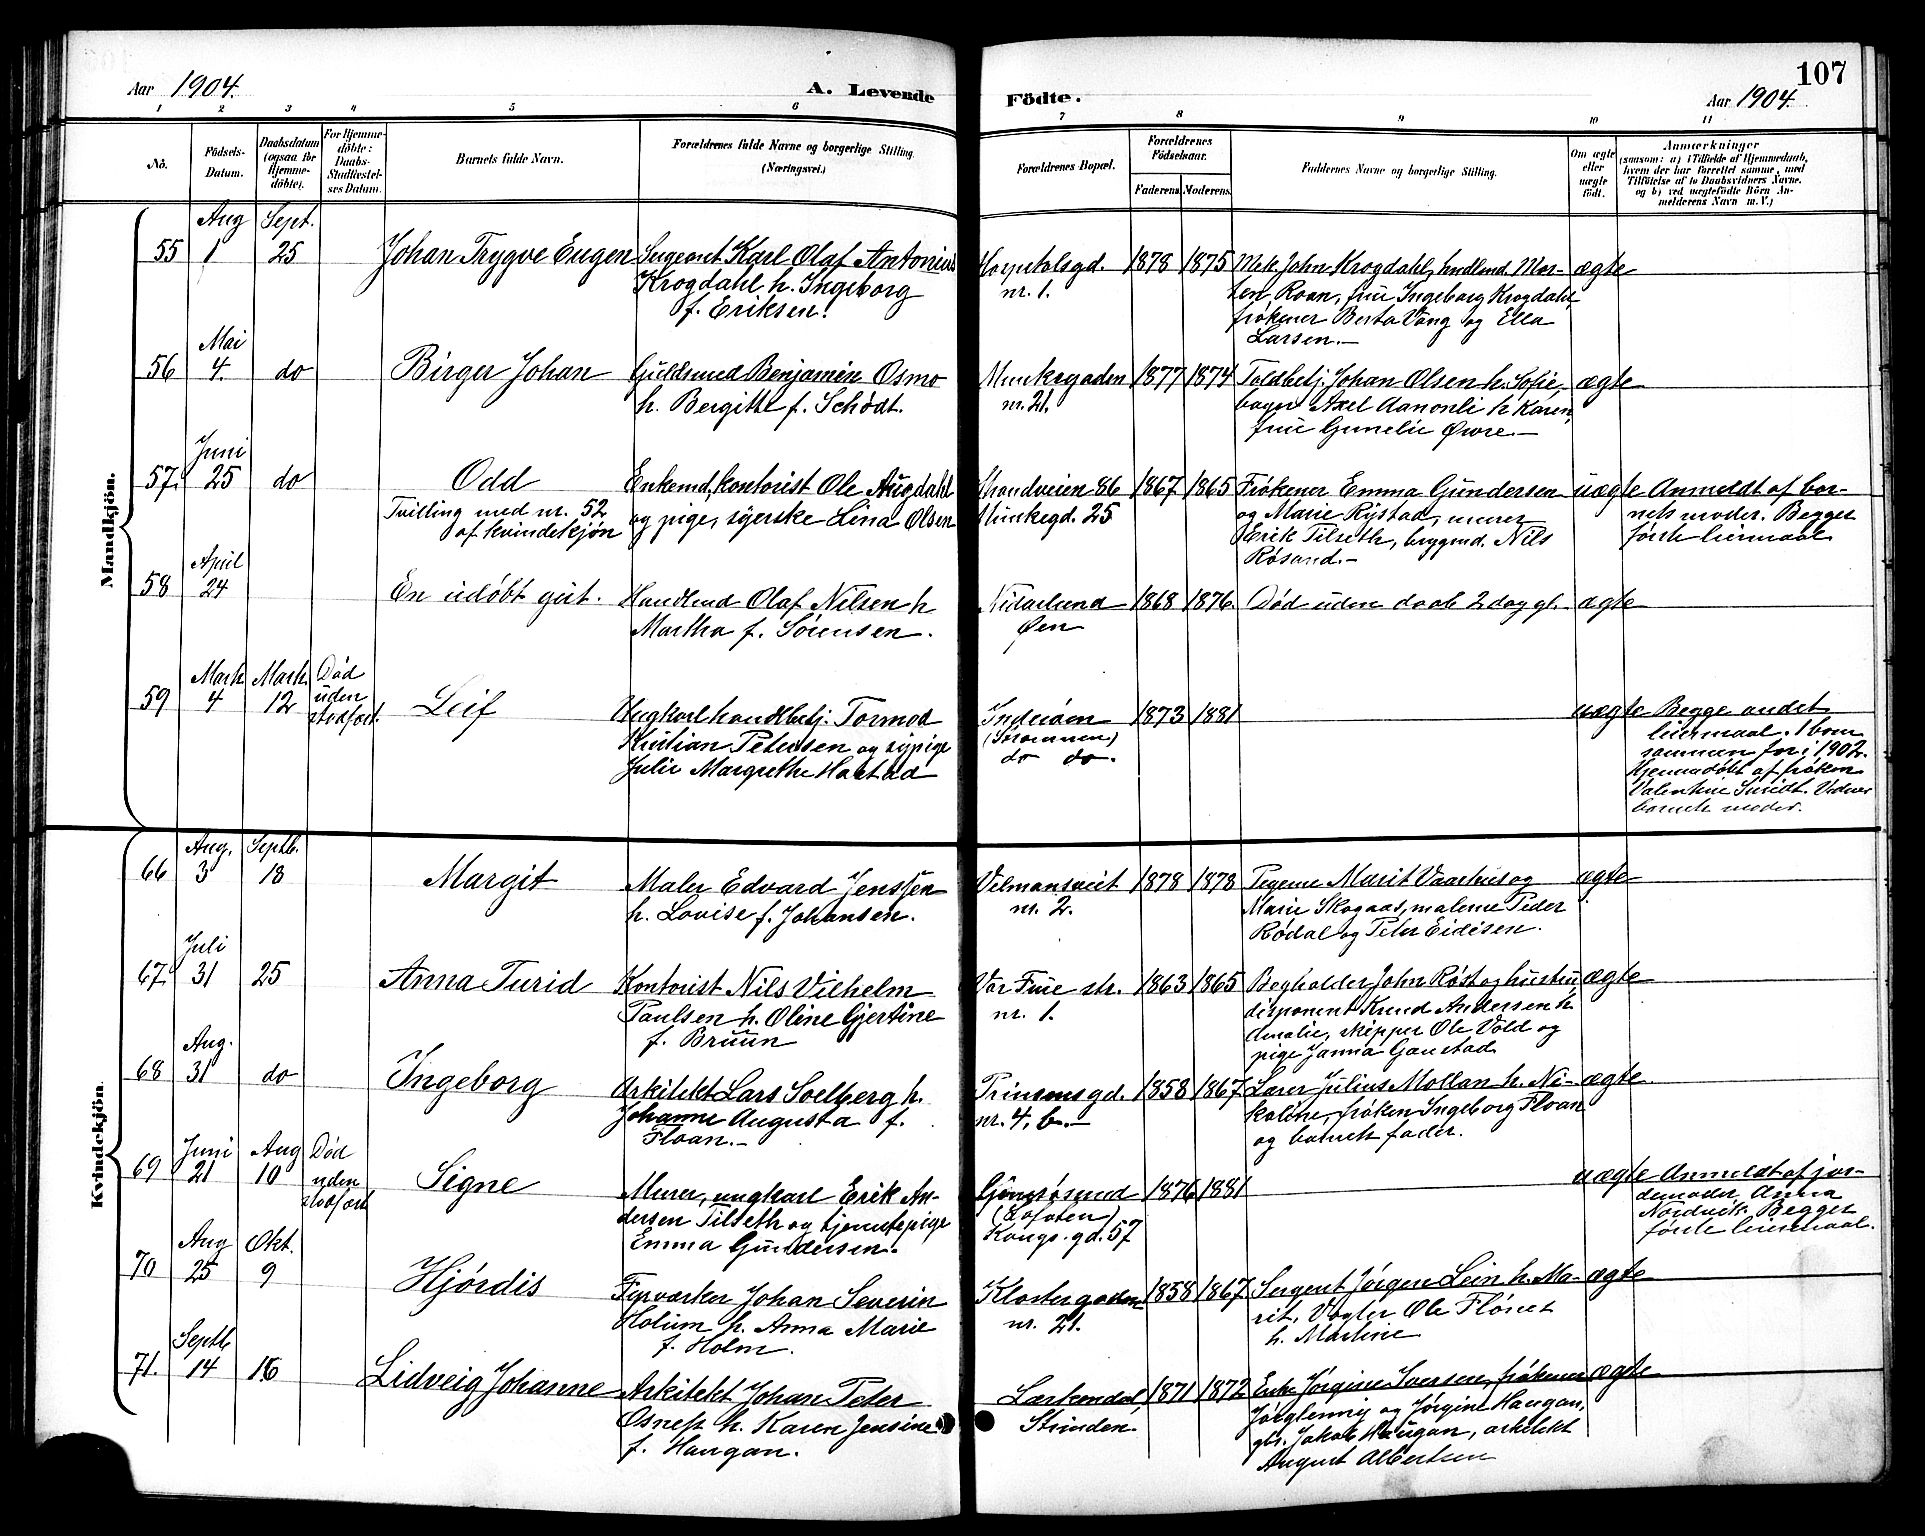 107
Aar 1904. A. Levende Födte. Aar 1904.
1 2 3 4 5 6 7 8 9 10 11
No.
Födsels-
Datum.
Daabsdatum
(ogsaa for
Hjemme-
döbte).
For Hjemme-
döbte:
Daabs-
Stadfæstel-
ses Datum.
Barnets fulde Navn.
Forældrenes fulde Navne og borgerlige Stilling.
(Næringsvei.)
Forældrenes Bopæl.
Forældrenes
Födselsaar.
Faderens
Moderens
Faddernes Navne og borgerlige Stilling.
Om ægte
eller
uægte
födt.
Anmærkninger
(saasom: a) i Tilfælde af Hjemmedaab,
hvem der har forrettet samme, med
Tilföielse af to Daabsvidners Navne,
og b) ved uægtefödte Börn An-
melderens Navn m. V.)
Mandkjön.
55
Aug
1
Sept.
25
Johan Trygve Eugen
Sergeant Karl Olaf Antonius
Krogdahl h. Ingeborg
f. Eriksen.
Hospitalsgd.
nr. 1.
1878
1875
Mek. John Krogdahl, handlmd. Mor-
ten Roan, frue Ingeborg Krogdahl,
frøkener Berta Vang og Ella
Larsen.-
ægte
56
Mai
4.
do
Birger Johan
Guldsmed Benjamin Osmo
h. Bergitte f. Schødt.
Munkegaden
nr. 21.
1877
1874
Toldbetj. Johan Olsen h. Sofie,
bager Axel Aanonli h. Karen,
frue Gunelie Øwre.-
ægte
57.
Juni
25
do
Odd
Tvilling med nr. 52
af kvindekjøn
Enkemd, kontorist Ole Augdahl
og pige, syerske Lina Olsen
Strandveien 86
Munkegd. 25
1867
1865
Frøkener Emma Gundersen
og Marie Rystad, murer
Erik Tilseth, brygmd. Nils
Røsand.-
uægte
Anmeldt af bar-
nets moder. Begges
første leiermaal
58
April
24
En udøbt gut.
Handlmd Olaf Nilsen h
Martha f. Sørensen.
Nidarlund
Øen
1868
1876.
Død uden daab 2 dag gl.
ægte
59
Marts
4
Marts
12
Død
uden
stadfæst.
Leif
Ungkarl handlbetj. Tormod
Kristian Petersen og sypige
Julie Margrethe Harstad
Inderøen
do do.
1873
1881
uægte
Begge andet
leiermaal. 1 barn
sammen før i 1902.
Hjemmedøbt af frøken
Valentine Smidt. Vidner
barnets moder.
Kvindekjön.
66
Aug.
3
Septb.
18
Margit
Maler Edvard Jenssen
h. Lovise f. Johansen.
Velmansveit
nr. 2.
1878
1878
Pigerne Marit Vaarhus og
Marie Skogaas, malerne Peder
Rødal og Peter Eidisen.
ægte
67.
Juli
31
25
Anna Turid
Kontorist Nils Vilhelm
Paulsen h. Oline Gjertine
f. Bruun
Vor Frue str.
nr. 1.
1863
1865
Bogholder John Røst og hustru
disponent Knud Andersen h.
Amalie, skipper Ole Vold og
pige Janna Gaustad
ægte
68
Aug.
31
do
Ingeborg
Arkitekt Lars Solberg h.
Johanne Augusta f.
Floan.-
Prinsensgd.
nr. 4, b.-
1858
1867
Lærer Julius Mollan h. Ni-
koline, frøken Ingeborg Floan
og barnets fader.
ægte
69
Juni
21
Aug
10
Død
uden
stadfæst
Signe
Murer, ungkarl Erik An-
dersen Tilseth og tjenestepige
Emma Gundersen.
(Lofoten)
Kongs. gd. 57
1876
1881
uægte
Anmeldt af jor-
demoder Anna
Nordvik. Begges
første leiermaal.
70
Aug
25
Okt.
9
Hjørdis
Fyrværker Johan Severin
Holum h. Anna Marie
f. Holm.
Klostergaden
nr. 21.
1858
1867
Sergent Jørgen Lein h. Ma-
rit, Vogter Ole Flønes
h. Martine
ægte
71.
Septb
14
16
Lidveig Johanne
Arkitekt Johan Peter
Osness h. Karen Jensine
f. Haugan.
Lerkendal,
Strinden.
1871
1872
Enke Jørgine Iversen, frøkener
og Jørgine Haugan,
gbr. Jakob Haugan, arkitekt
August Albertsen
ægte